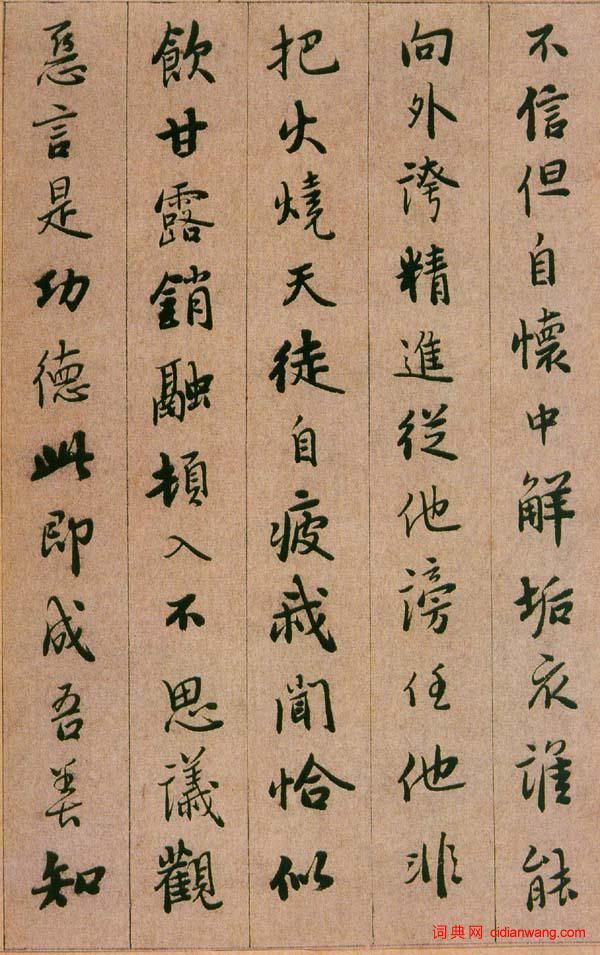 不信但自懷中解垢衣誰能
向外誇精進從他謗任他非
把火燒天徒自疲我聞恰似
飲甘露銷融頓入不思議觀
惡言是功德此即成吾善知
词典网 cidianwang.com